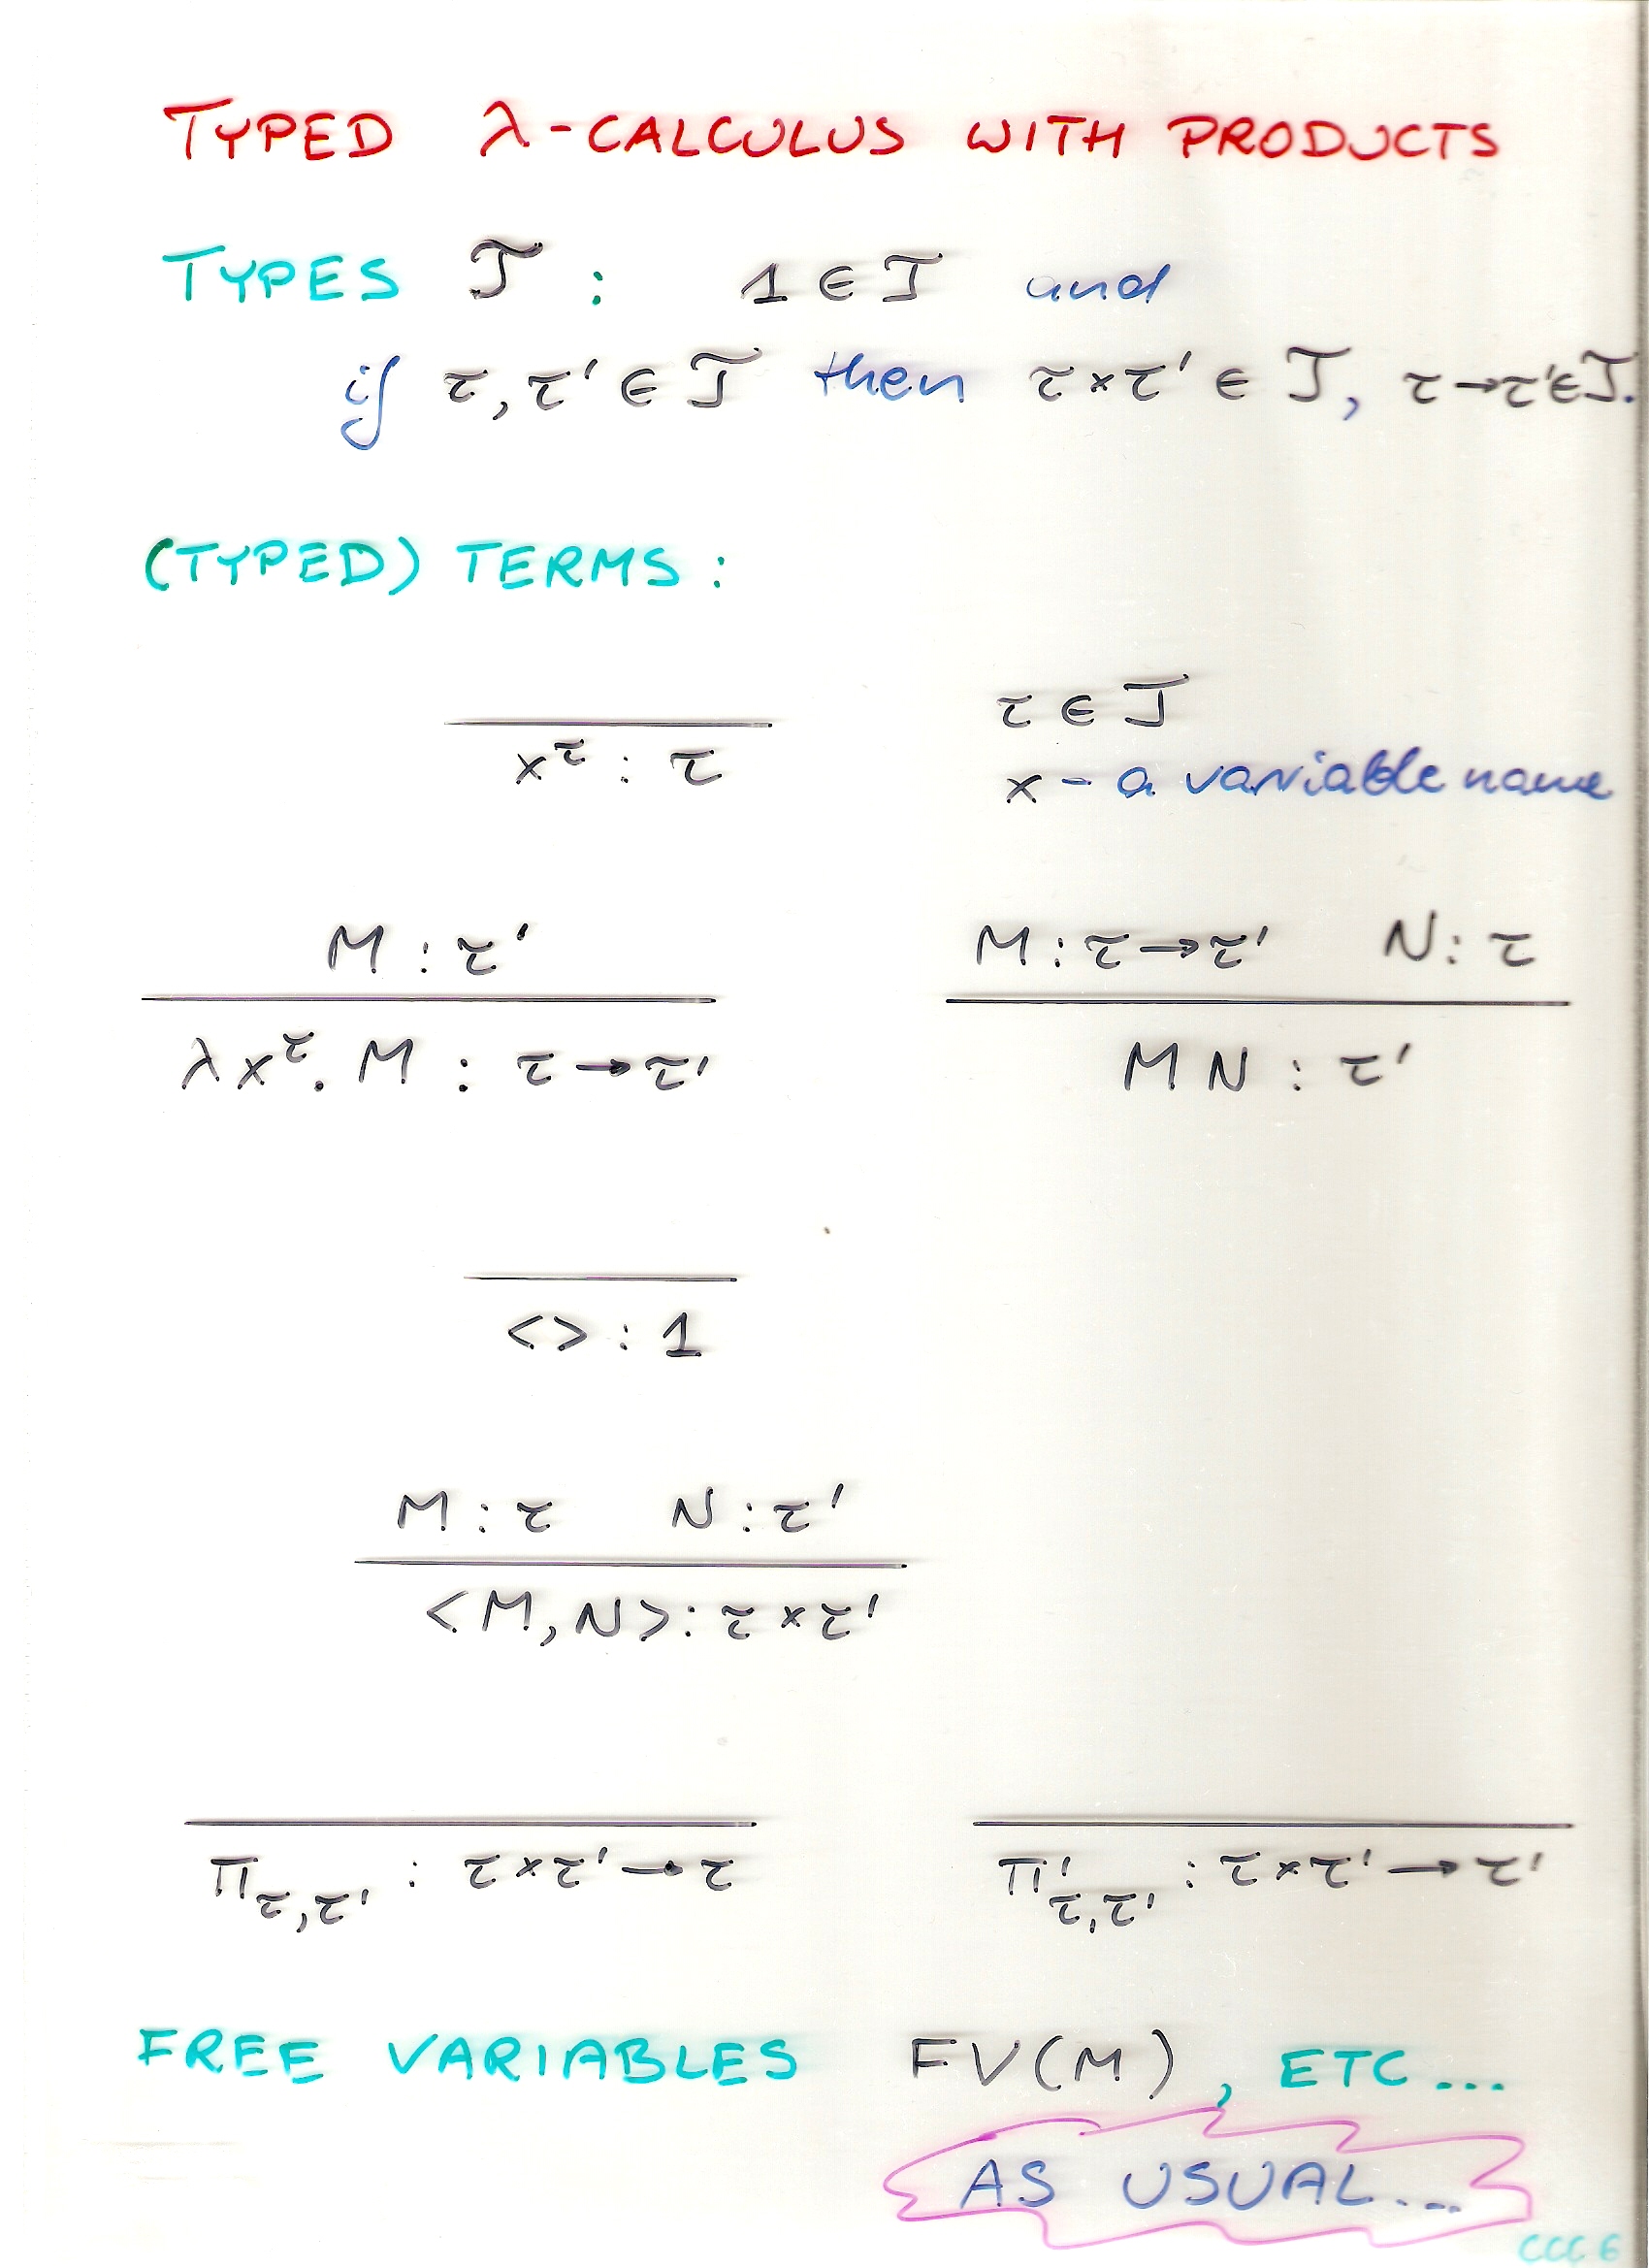 TYPED λ-CALCULUS WITH PRODUCTS
TYPES 𝒯 : 1 ∈ 𝒯 and
if τ, τ' ∈ 𝒯 then τ×τ' ∈ 𝒯, τ→τ' ∈ 𝒯.
(TYPED) TERMS :
τ ∈ 𝒯
x^τ : τ
x - a variable name
M : τ'
M : τ→τ' N : τ
λx^τ. M : τ→τ'
MN : τ'
<> : 1
M : τ N : τ'
<M, N> : τ×τ'
π_{τ,τ'} : τ×τ'→τ
π'_{τ,τ'} : τ×τ'→τ'
FREE VARIABLES FV(M), ETC...
AS USUAL...
CCC 6